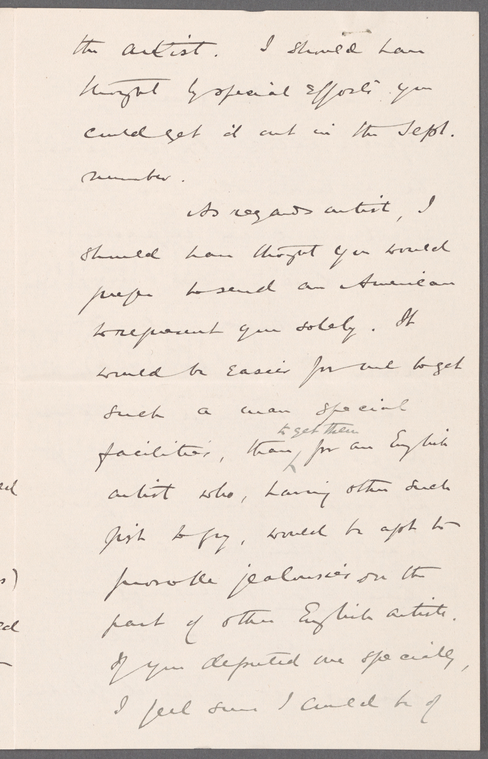 the artist. I should have
thought by special efforts you
could get it out in the Sept.
number.
As regards artist, I
should have thought you would
prefer to send an American
to represent you solely. It
would be easier for me to get
such a man special
to get them
facilities, than for an English
artist who, having other such
fish to fry, would be apt to
provoke jealousies on the
part of other English artists.
If you deputed one specially,
I feel sure I could be of
ed
s)
ed